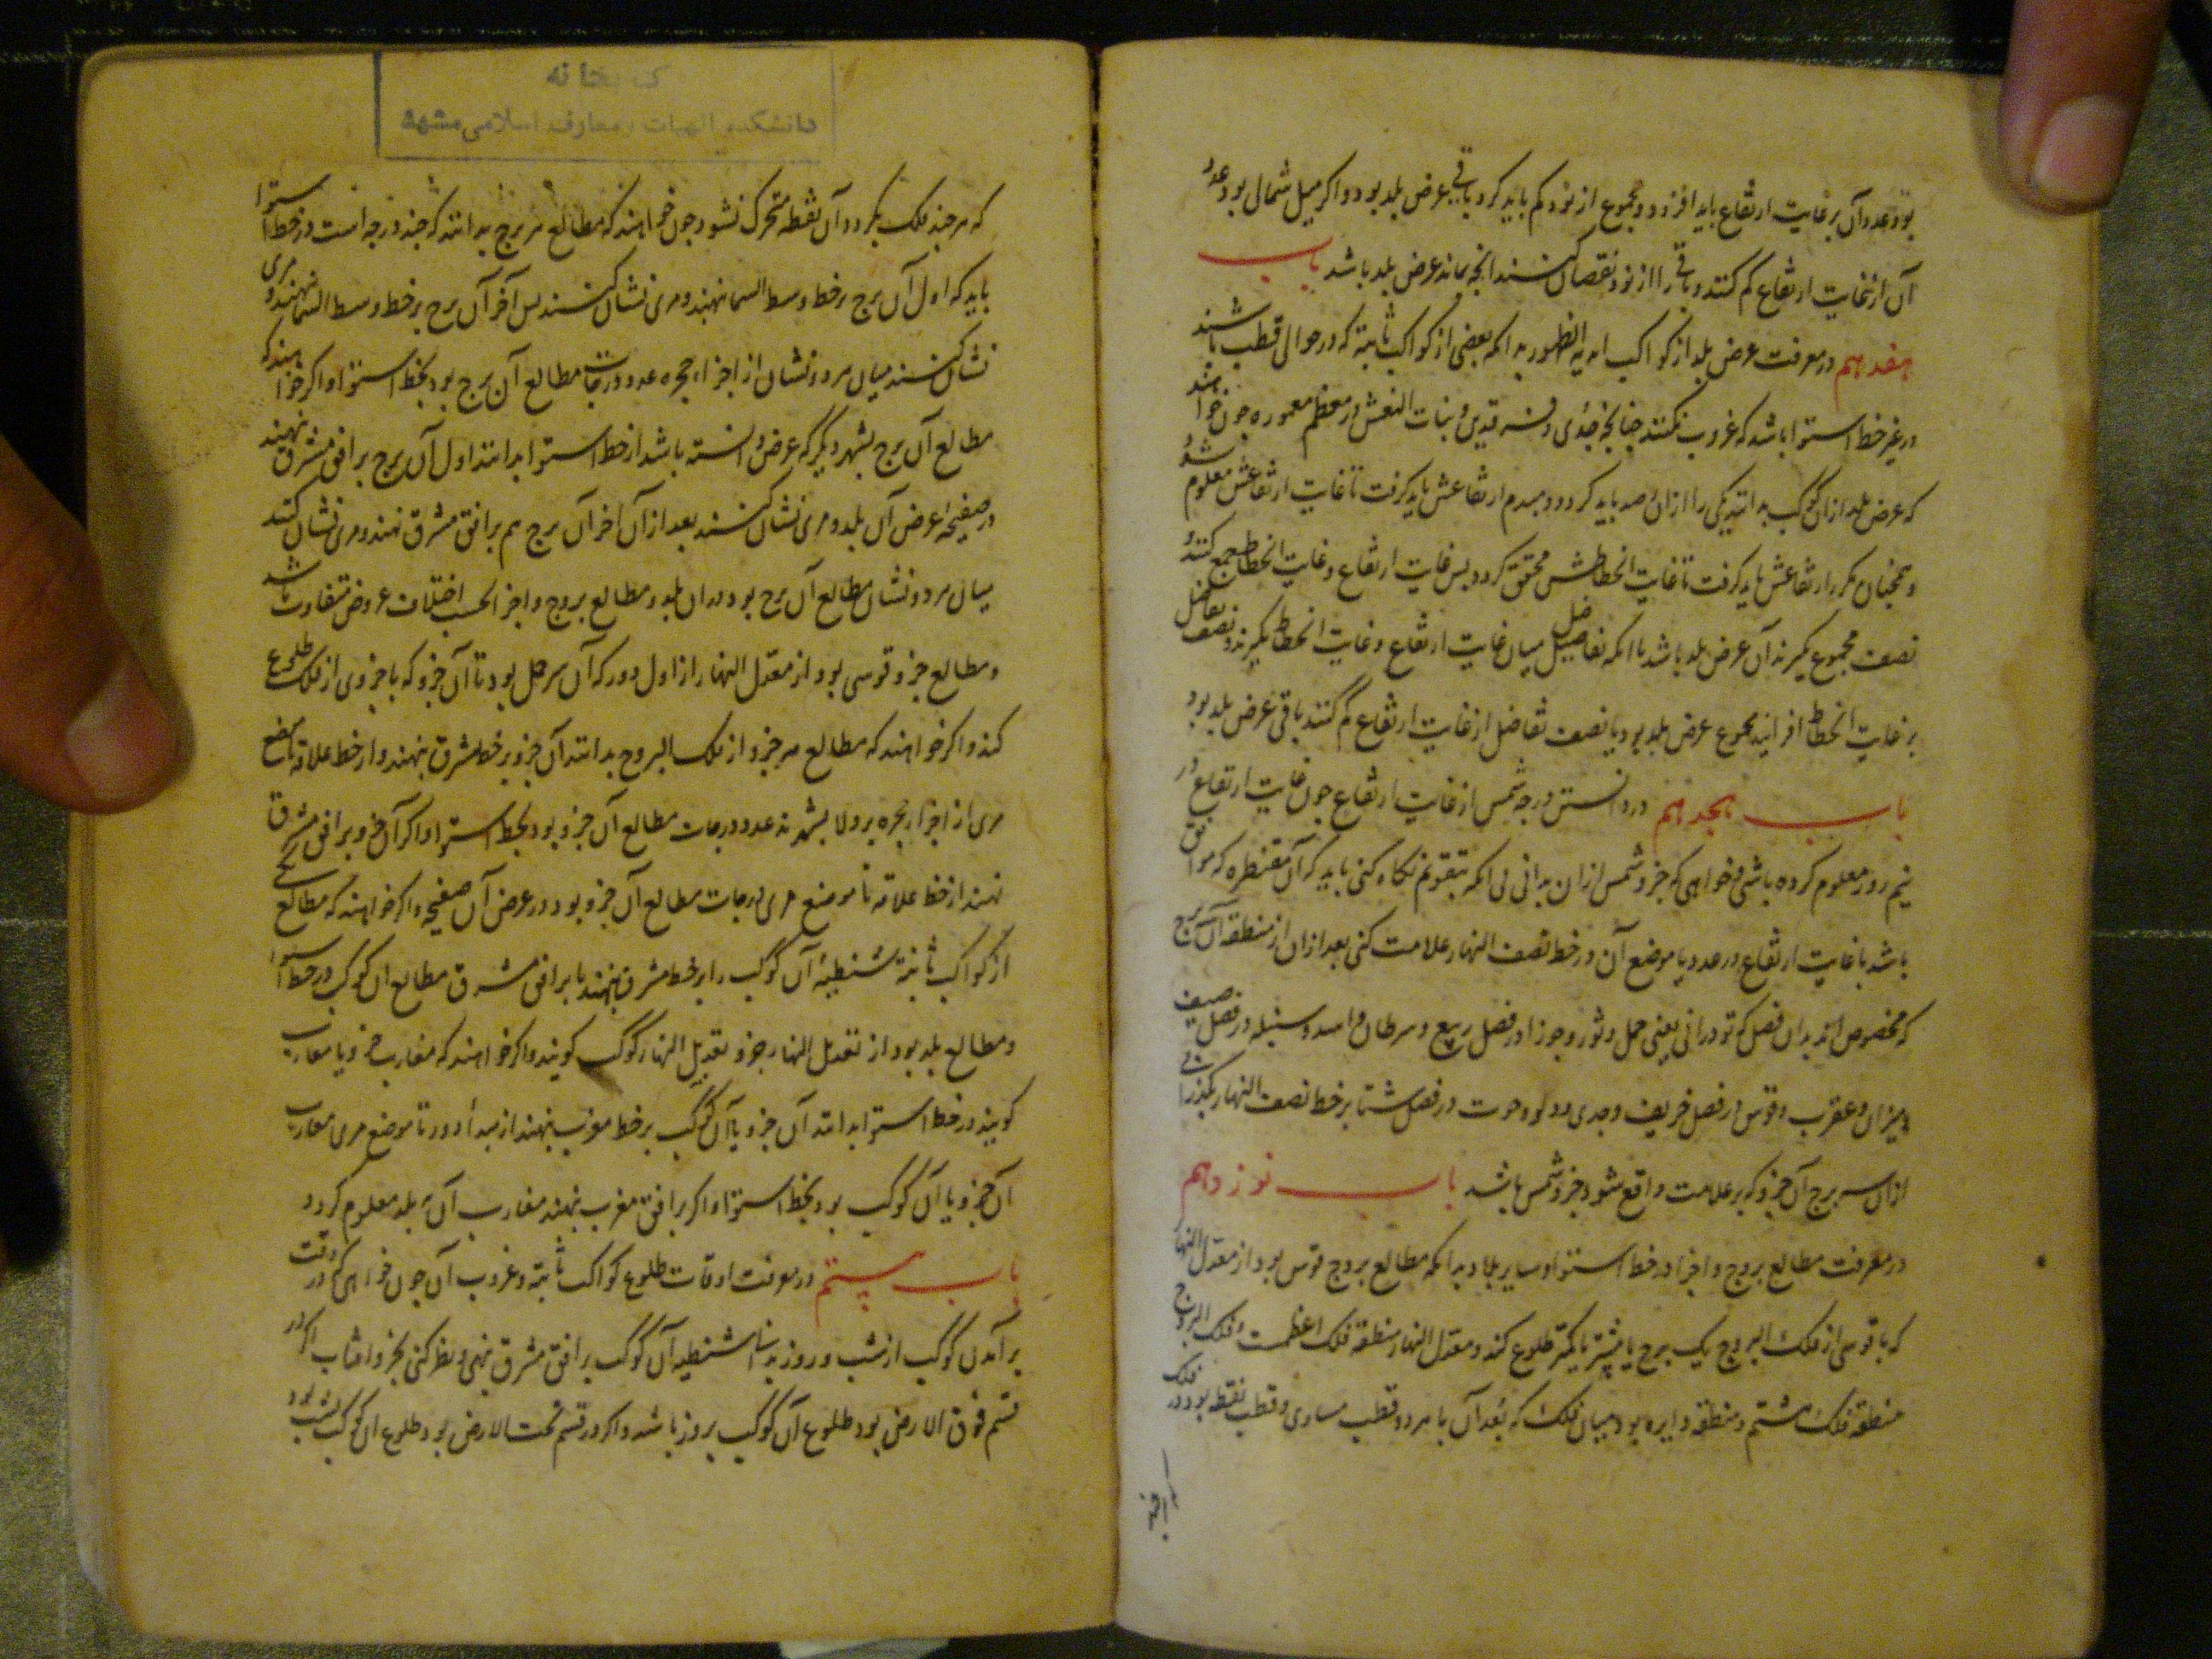 بود عدد آن بر غایت ارتفاع باید افزود و مجموع از نود کم باید کرد باقی عرض بلد بود و اکر میل شمالی بود عدد
آن از غایت ارتفاع کم کنند و باقی را از نود نقصان کنند انچه بماند عرض بلد باشد باب
هفدهم در معرفت عرض بلد از کواکب ابدیه الظهور بدانکه بعضی از کواکب ثابته که در حوالی قطب باشند
در غیر خط استوا باشد که غروب نکنند چنانچه جدی و فرقدین و بنات النعش در معظم معموره چون خواهند
که عرض بلد از ان کوکب بدانند یکی را از ان رصد باید کرد و دمبدم ارتفاعش باید کرفت تا غایت ارتفاعش معلوم شود
و همچنان مکرر ارتفاعش باید کرفت تا غایت انحطاطش محقق کردد پس غایت ارتفاع و غایت انحطاط جمع کنند و
نصف مجموع کیرند آن عرض بلد باشد یا انکه تفاضل میان غایت ارتفاع و غایت انحطاط بکیرند و نصف تفاضل
بر غایت انحطاط افزایند مجموع عرض بلد بود یا نصف تفاضل از غایت ارتفاع کم کنند باقی عرض بلد بود
باب هجدهم در دانستن درجه شمس از غایت ارتفاع چون غایت ارتفاع در
نیم روز معلوم کرده باشی و خواهی که جزو شمس از ان بدانی بی انکه بتقویم نکاه کنی باید که آن مقنطره که موافق
باشد با غایت ارتفاع در عدد یا موضع آن در خط نصف النهار علامت کنی بعد از ان از منطقه آن سه برج
که مخصوص اند بدان فصل که تو در انی یعنی حمل و ثور و جوزا در فصل ربیع و سرطان و اسد و سنبله در فصل صیف
و میزان و عقرب و قوس در فصل خریف و جدی و دلو و حوت در فصل شتا بر خط نصف النهار بکذرانی
از ان سه برج آن جزو که بر علامت واقع شود جزو شمس باشد باب نوزدهم
در معرفت مطالع بروج و اجزا در خط استوا و سایر بلاد بدانکه مطالع بروج قوس بود از معدل النهار
که با قوسی از فلک البروج یک برج یا بیشتر یا کمتر طلوع کند و معدل النهار منطقه فلک اعظمست و فلک البروج
منطقه فلک هشتم و منطقه دایره بود میان فلک که بُعد آن با هر دو قطب مساوی و قطب نقطه بود در فلک
که هر چند فلک بکردد آن نقطه متحرک نشود چون خواهند که مطالع هر برج بدانند که چند درجه است در خط استوا
باید که اول آن برج بر خط وسط السما نهند و مری نشان کنند پس آخر آن برج بر خط وسط السما نهند و مری
نشان کنند میان هر دو نشان از اجزاء حجره عدد درجات مطالع آن برج بود بخط استوا و اکر خواهند که
مطالع آن برج بشهر دیکر که عرض دانسته باشد از خط استوا بدانند اول آن برج بر افق مشرق نهند
در صفیحه عرض آن بلد و مری نشان کنند بعد از آن آخر آن برج هم بر افق مشرق نهند و مری نشان کنند
میان هر دو نشان مطالع آن برج بود در ان بلد و مطالع بروج و اجزا بحسب اختلاف عروض متفاوت باشد
و مطالع جزو قوسی بود از معدل النهار از اول دور که آن سر حمل بود تا آن جزو که با جزوی از فلک طلوع
کند و اکر خواهند که مطالع هر جزو از فلک البروج بدانند آن جزو بر خط مشرق نهند و از خط علاقه تا موضع
مری از اجزاء حجره بر ولا بشمرند عدد درجات مطالع آن جزو بود بخط استوا و اکر آن جزو بر افق مشرق
نهند از خط علاقه تا موضع مری درجات مطالع آن جزو بود در عرض آن صفیحه و اکر خواهند که مطالع یکی
از کواکب ثابته شنطیه آن کوکب را بر خط مشرق نهند یا بر افق مشرق مطالع ان کوکب در خط استوا
و مطالع بلد بود از تعدیل النهار جزو تعدیل النهار کوکب کویند و اکر خواهند که مغارب جزو یا مغارب
کویند در خط استوا بدانند آن جزو یا آن کوکب بر خط مغرب نهند از مبدأ دور تا موضع مری مغارب
آن جزو یا آن کوکب بود بخط استوا و اکر بر افق مغرب نهند مغارب آن بلد معلوم کردد
باب بیستم در معرفت اوقات طلوع کواکب ثابته و غروب آن چون خواهی که وقت
بر آمدن کوکب از شب و روز بدانی شنطیه آن کوکب بر افق مشرق نهی و نظر کنی بجزو افتاب اکر در
قسم فوق الارض بود طلوع آن کوکب بروز باشد و اکر در قسم تحت الارض بود طلوع ان کوکب بشب بود
کتابخانه
دانشکده الهیات و معارف اسلامی مشهد